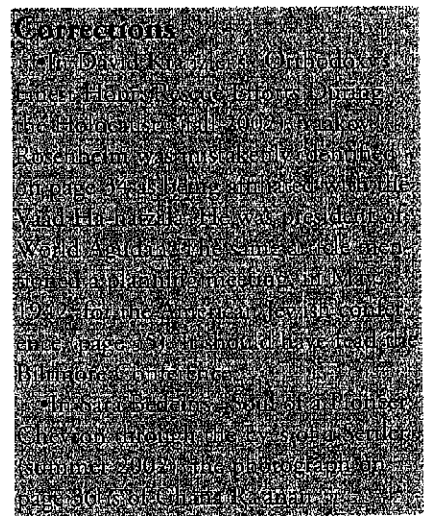 Corrections
•In David Kranzler's "Orthodoxy's
Finest Hour: Rescue Efforts During
the Holocaust" (fall 2002),
Rosenheim was mistakenly identified
on page 34 as being affiliated with the
Va'ad Ha-hatzala. He was president of
World Agudah. The same article men-
tioned a planning meeting in May
1942 for the American Jewish Confer-
ence (page 35). It should have read the
Biltmore Conference.
•In Sara Bedein's of a Pioneer:
Chevron through the Eyes of a Settler"
(summer 2002), the photograph on
page 36 is of